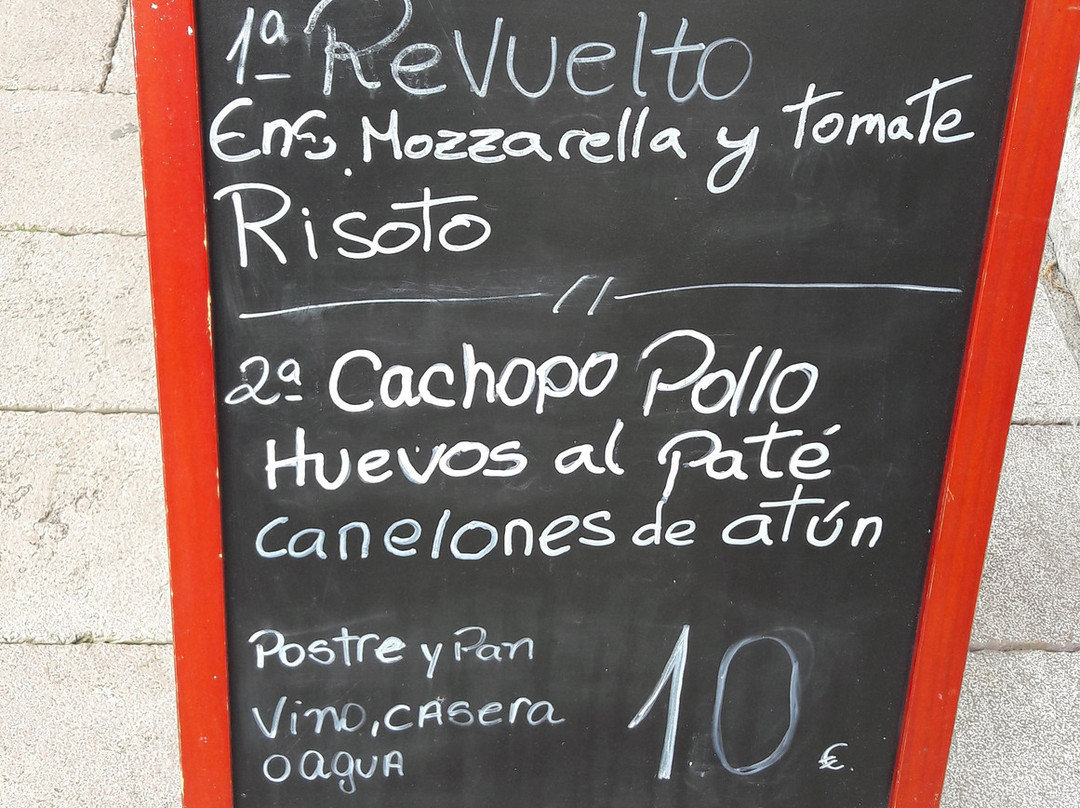 1ª Revuelto
Ens. Mozzarella y tomate
Risoto
2ª Cachopo Pollo
Huevos al Paté
canelones de atún
Postre y Pan
Vino, CASera
o agua
10 €.